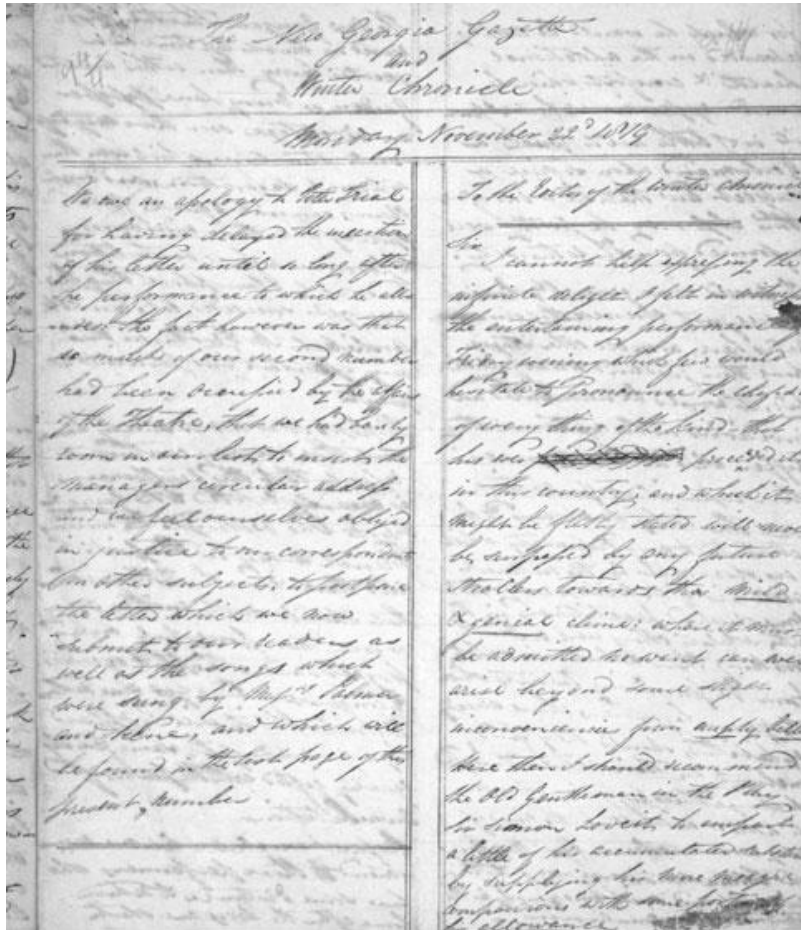 The New Georgia Gazette
and
Winter Chronicle
Monday November 22d 1819
We owe an apology to Peter Trial
for having delayed the insertion
of his letter until so long after
the performance to which he allu
the fact however was that
so much of our second number
had been occupied by the affairs
of the Theatre, that we had barely
room in our last to insert the
Managers circular address
and we feel ourselves obliged
in justice to our correspondents
on other subjects, to postpone
the letter which we now
submit to our readers as
well as the songs which
were sung by Messrs Palmer
and and which will
be found in the last page of the
present number.
To the Editor of the Winter Chronicle
Sir
I cannot help expressing the
infinite delight I felt in
the entertaining performance
Friday evening which few would
hesitate to pronounce the
of every thing of the kind that
has ever preceded it
in this country; and which it
might be stated will never
be surpassed by any future
Strollers towards this mild
& genial clime; where it must
be admitted no can ever
arise beyond some slight
inconvenience from empty
Here then I should recommend
the Old Gentleman in the Play
Sir Simon Loveit, to
a little of his accumulated
by supplying his more meagre
companions with some
allowance